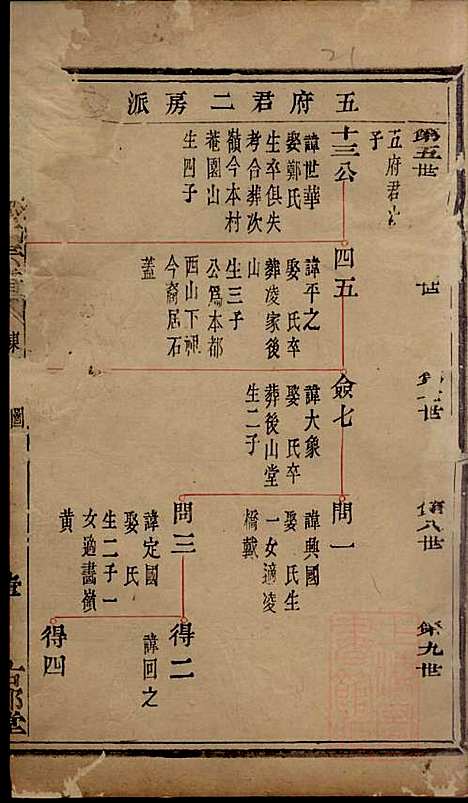 五府君二房派
第五世
五府君次
子
十三公
諱世華
娶鄭氏
生卒俱失
考合葬次
嶺今本村
菴園山
生四子
世
四五
諱平之
娶 氏卒
葬凌家後
山
生三子
公爲本都
西山下祖
今裔居石
蓋
世
僉七
諱大象
娶 氏卒
葬後山堂
生二子
第八世
問一
諱興國
娶 氏生
一女適凌
橋戴
問三
諱定國
娶 氏
生二子一
女適畵嶺
黃
第九世
得二
諱回之
得四
圖